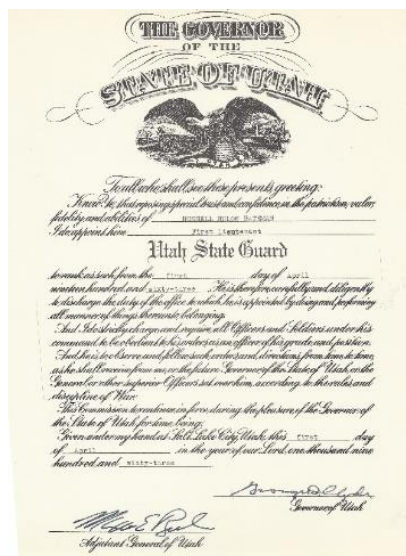 THE GOVERNOR
OF THE
STATE OF UTAH
To all who shall see these presents, greeting:
Know Ye, that reposing special trust and confidence in the patriotism, valor,
fidelity and abilities of
I do appoint him First Lieutenant
Utah State Guard
to rank as such from the first day of April
nineteen hundred and sixty-three. He is therefore, carefully and diligently
to discharge the duty of the office to which he is appointed by doing and performing
all manner of things thereunto belonging.
And I do strictly charge and require all Officers and Soldiers under his
command to be obedient to his orders as an officer of his grade and position.
And he is to observe and follow such orders and directions, from time to time,
as he shall receive from me, or the future Governor of the State of Utah, or the
General or other superior Officers set over him, according to the rules and
discipline of War.
This Commission to continue in force during the pleasure of the Governor of
the State of Utah for time being.
Given under my hand at Salt Lake City, Utah, this first day
of April in the year of our Lord, one thousand nine
hundred and sixty-three
Governor of Utah
Adjutant General of Utah